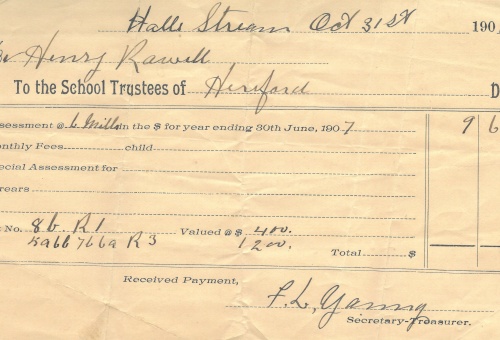 Halls Stream Oct 31st 190
Henry Rowell
To the School Trustees of Hereford D
ssessment @ 6 Mills in the $ for year ending 30th June, 1907 9 6
onthly Fees child
ecial Assessment for
rears
No. 8b R1 Valued @ $ 400.
5a6b 7b6a R3 1200.
Total $
Received Payment,
F. L. Young
Secretary-Treasurer.